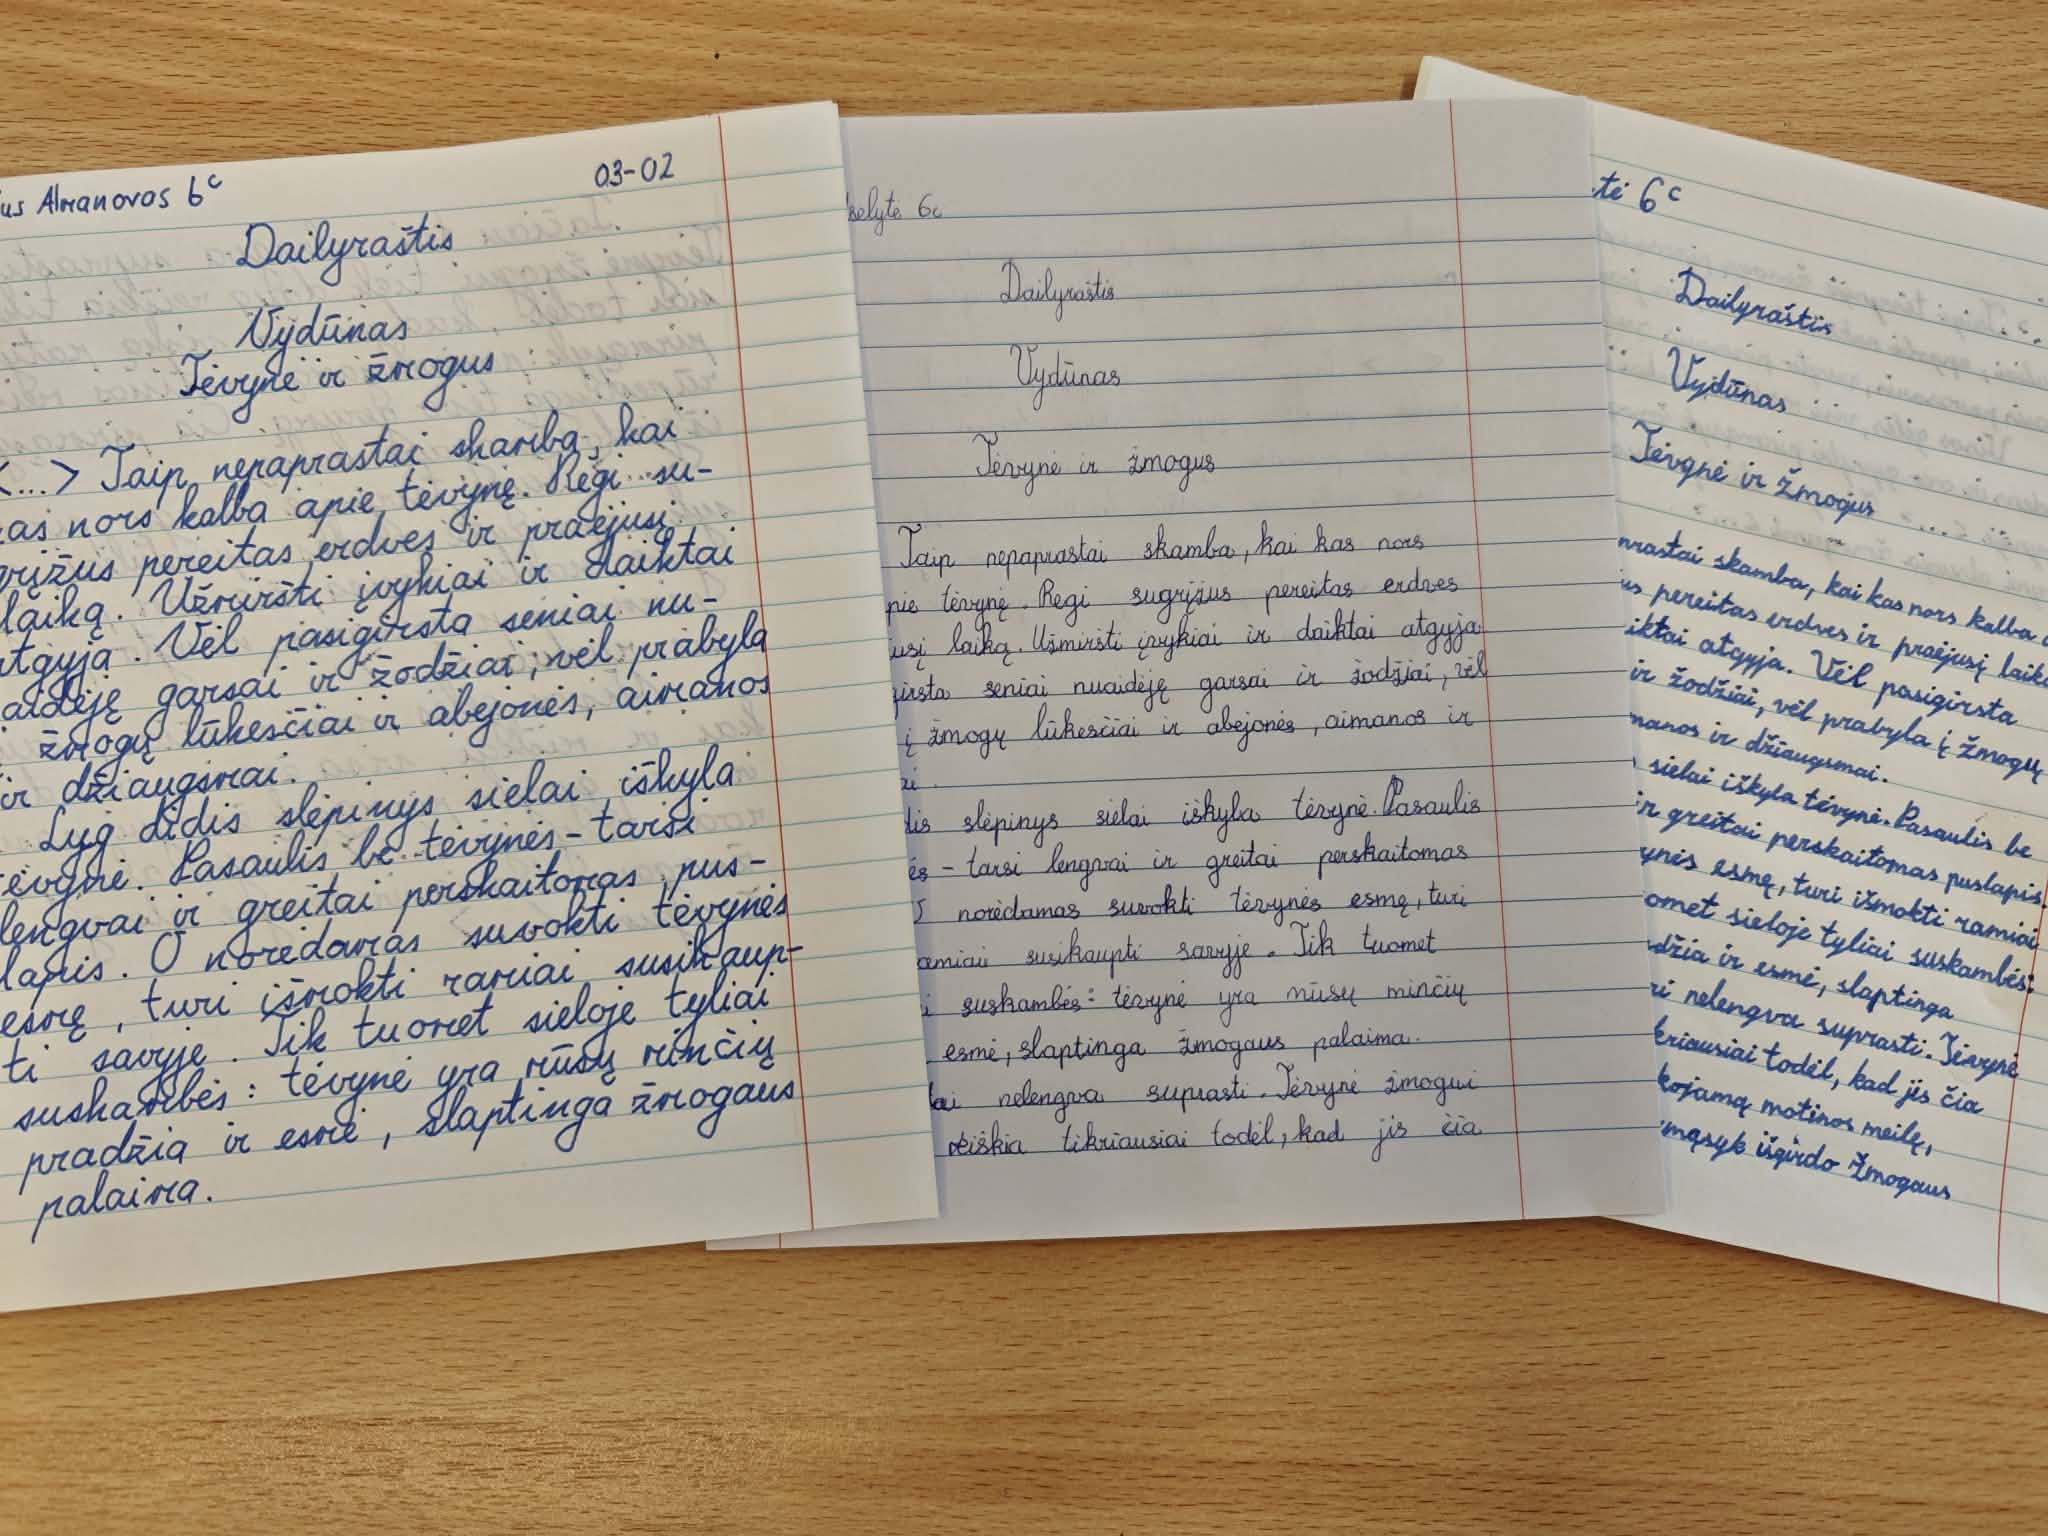 us Almanovas 6c
03-02
Dailyraštis
Vydūnas
Tėvynė ir žmogus
<...> Taip nepaprastai skamba, kai
kas nors kalba apie tėvynę. Regi su-
grįžus pereitas erdves ir praėjusį
laiką. Užmiršti įvykiai ir daiktai
atgyja. Vėl pasigirsta seniai nu-
aidėję garsai ir žodžiai, vėl prabyla
į žmogų lūkesčiai ir abejonės, aimanos
ir džiaugsmai.
Lyg didis slėpinys sielai iškyla
tėvynė. Pasaulis be tėvynės - tarsi
lengvai ir greitai perskaitomas pus-
lapis. O norėdamas suvokti tėvynės
esmę, turi išmokti ramiai susikaup-
ti savyje. Tik tuomet sieloje tyliai
suskambės: tėvynė yra mūsų minčių
pradžia ir esmė, slaptinga žmogaus
palaima.
selytė 6c
Dailyraštis
Vydūnas
Tėvynė ir žmogus
Taip nepaprastai skamba, kai kas nors
pie tėvynę. Regi sugrįžus pereitas erdves
usį laiką. Užmiršti įvykiai ir daiktai atgyja
girsta seniai nuaidėję garsai ir žodžiai, vėl
į žmogų lūkesčiai ir abejonės, aimanos ir
ai.
dis slėpinys sielai iškyla tėvynė. Pasaulis
ės - tarsi lengvai ir greitai perskaitomas
O norėdamas suvokti tėvynės esmę, turi
amiai susikaupti savyje. Tik tuomet
i suskambės: tėvynė yra mūsų minčių
esmė, slaptinga žmogaus palaima.
ai nelengva suprasti. Tėvynė žmogui
reiškia tikriausiai todėl, kad jis čia
tė 6c
Dailyraštis
Vydūnas
Tėvynė ir žmogus
prastai skamba, kai kas nors kalba a
us pereitas erdves ir praėjusį laiką
iktai atgyja. Vėl pasigirsta
ir žodžiai, vėl prabyla į žmogų
manos ir džiaugsmai.
sielai iškyla tėvynė. Pasaulis be
ir greitai perskaitomas puslapis.
ynės esmę, turi išmokti ramiai
omet sieloje tyliai suskambės:
džia ir esmė, slaptinga
ri nelengva suprasti. Tėvynė
kriausiai todėl, kad jis čia
kojamą motinos meilę,
mąsyk išgirdo žmogaus